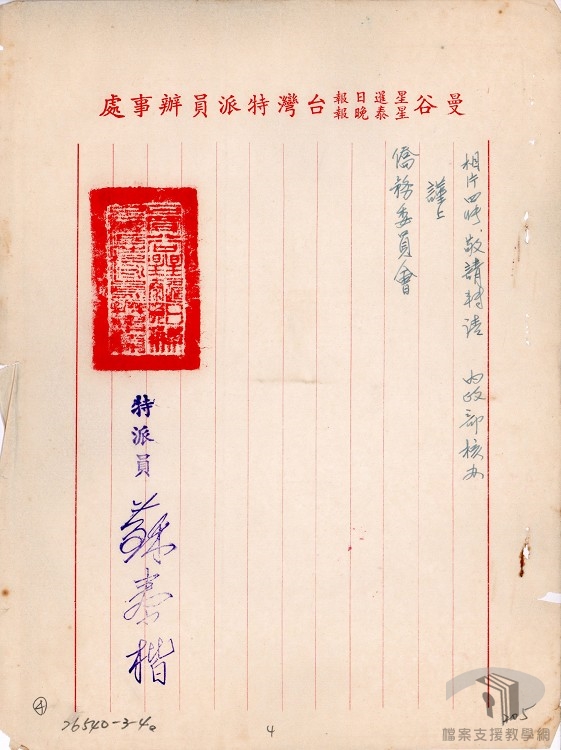 曼谷星暹日報星泰晚報台灣特派員辦事處
相片四吋敬請轉請 內政部核办
謹上
僑務委員會
特派員 蘇泰楷
④
26540-3-4
4
205
檔案支援教學網